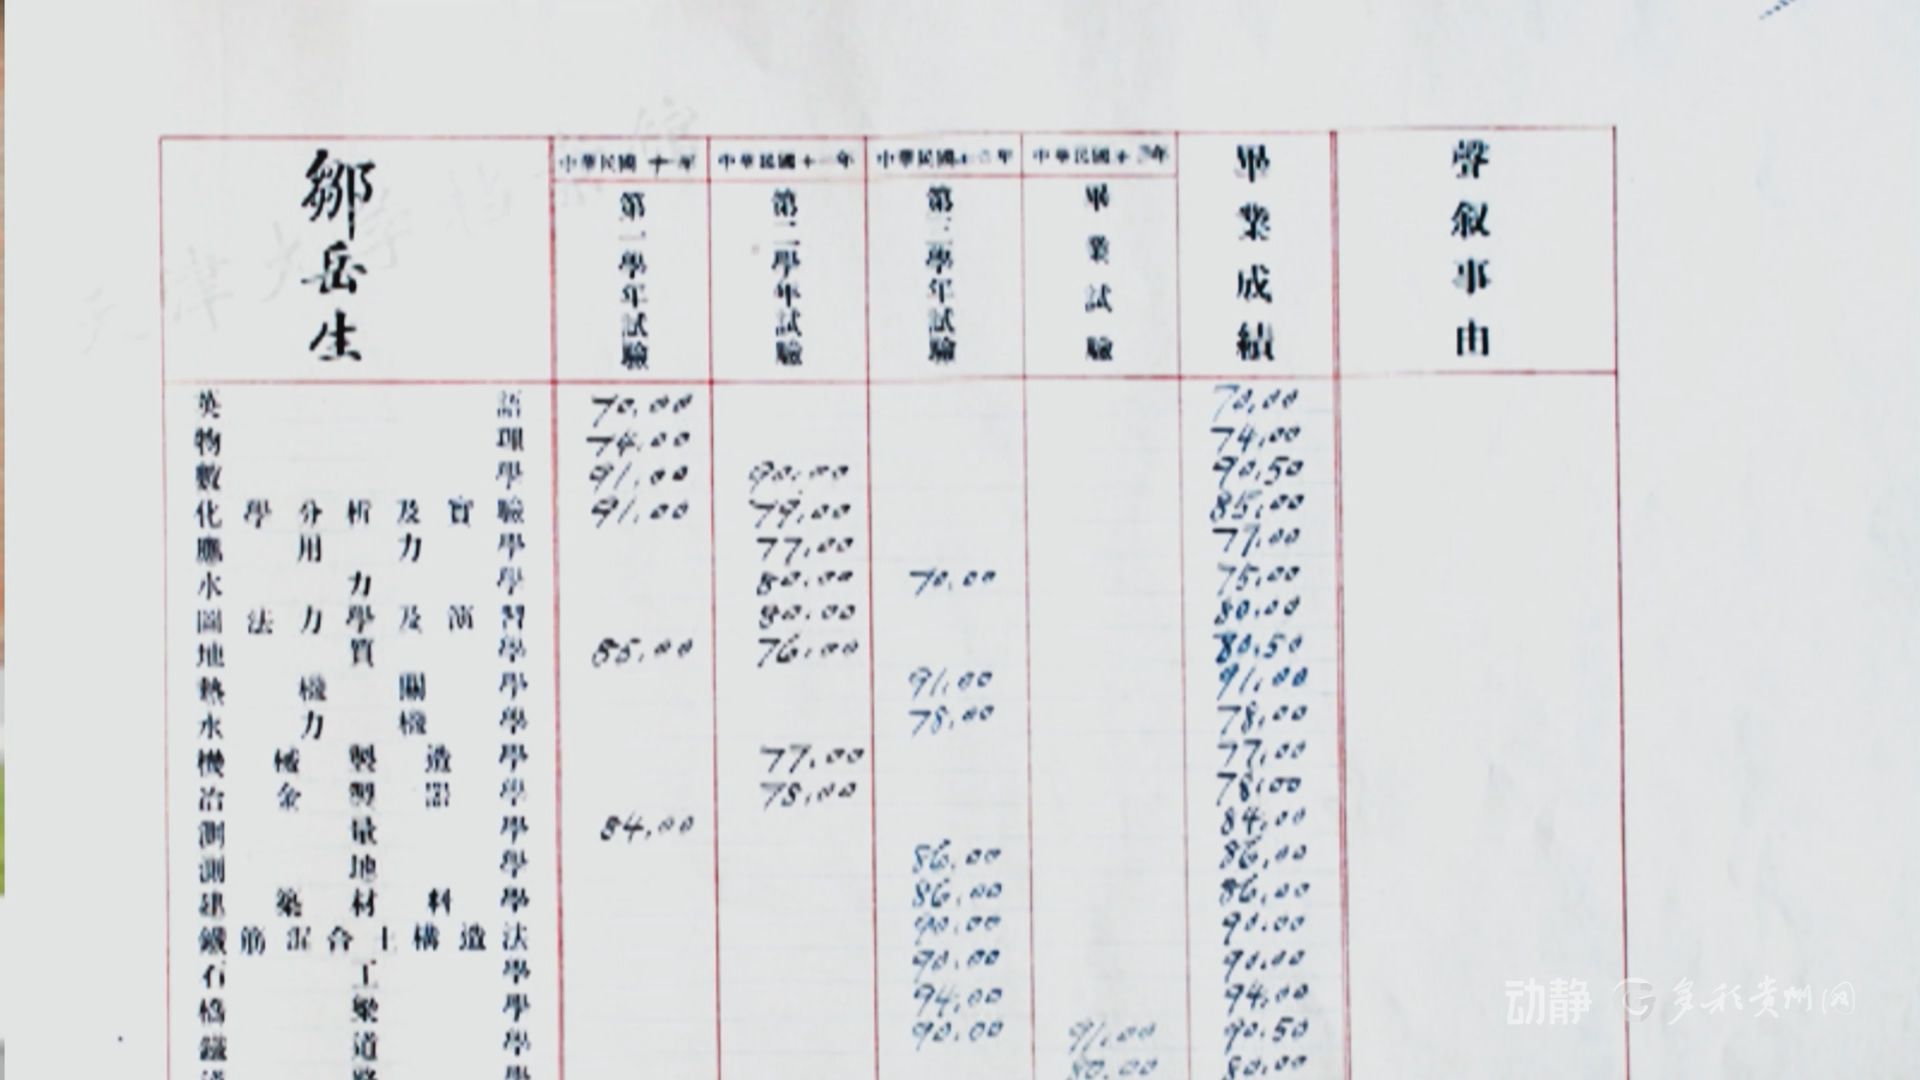 鄒岳生
中華民國十年 第一學年試驗
中華民國十一年 第二學年試驗
中華民國十二年 第三學年試驗
中華民國十 年 畢業試驗
畢業成績
聲敘事由
英語 70.00 70.00
物理 74.00 74.00
數學 91.00 90.00 90.50
化學分析及實驗 91.00 79.00 85.00
應用力學 77.00 77.00
水力學 80.00 70.00 75.00
圖法力學及演習 80.00 80.00
地質學 85.00 76.00 80.50
熱機關學 91.00 91.00
水力機學 78.00 78.00
機械製造學 77.00 77.00
冶金製器學 78.00 78.00
測量學 84.00 84.00
測地學 86.00 86.00
建築材料學 86.00 86.00
鐵筋混合土構造法 90.00 90.00
石工學 90.00 90.00
橋梁學 94.00 94.00
鐵道學 90.00 91.00 90.50
80.00 80.00
天津大学档案馆
动静 多彩贵州网